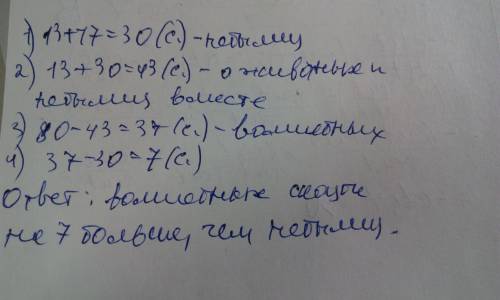 1) 13+17=30 (с.) - небылиц
2) 13+30=43 (с.) - о животных и
небылиц вместе
3) 80-43=37 (с.) - волшебных
4) 37-30=7 (с.)
Ответ: волшебных сказок
на 7 больше, чем небылиц.